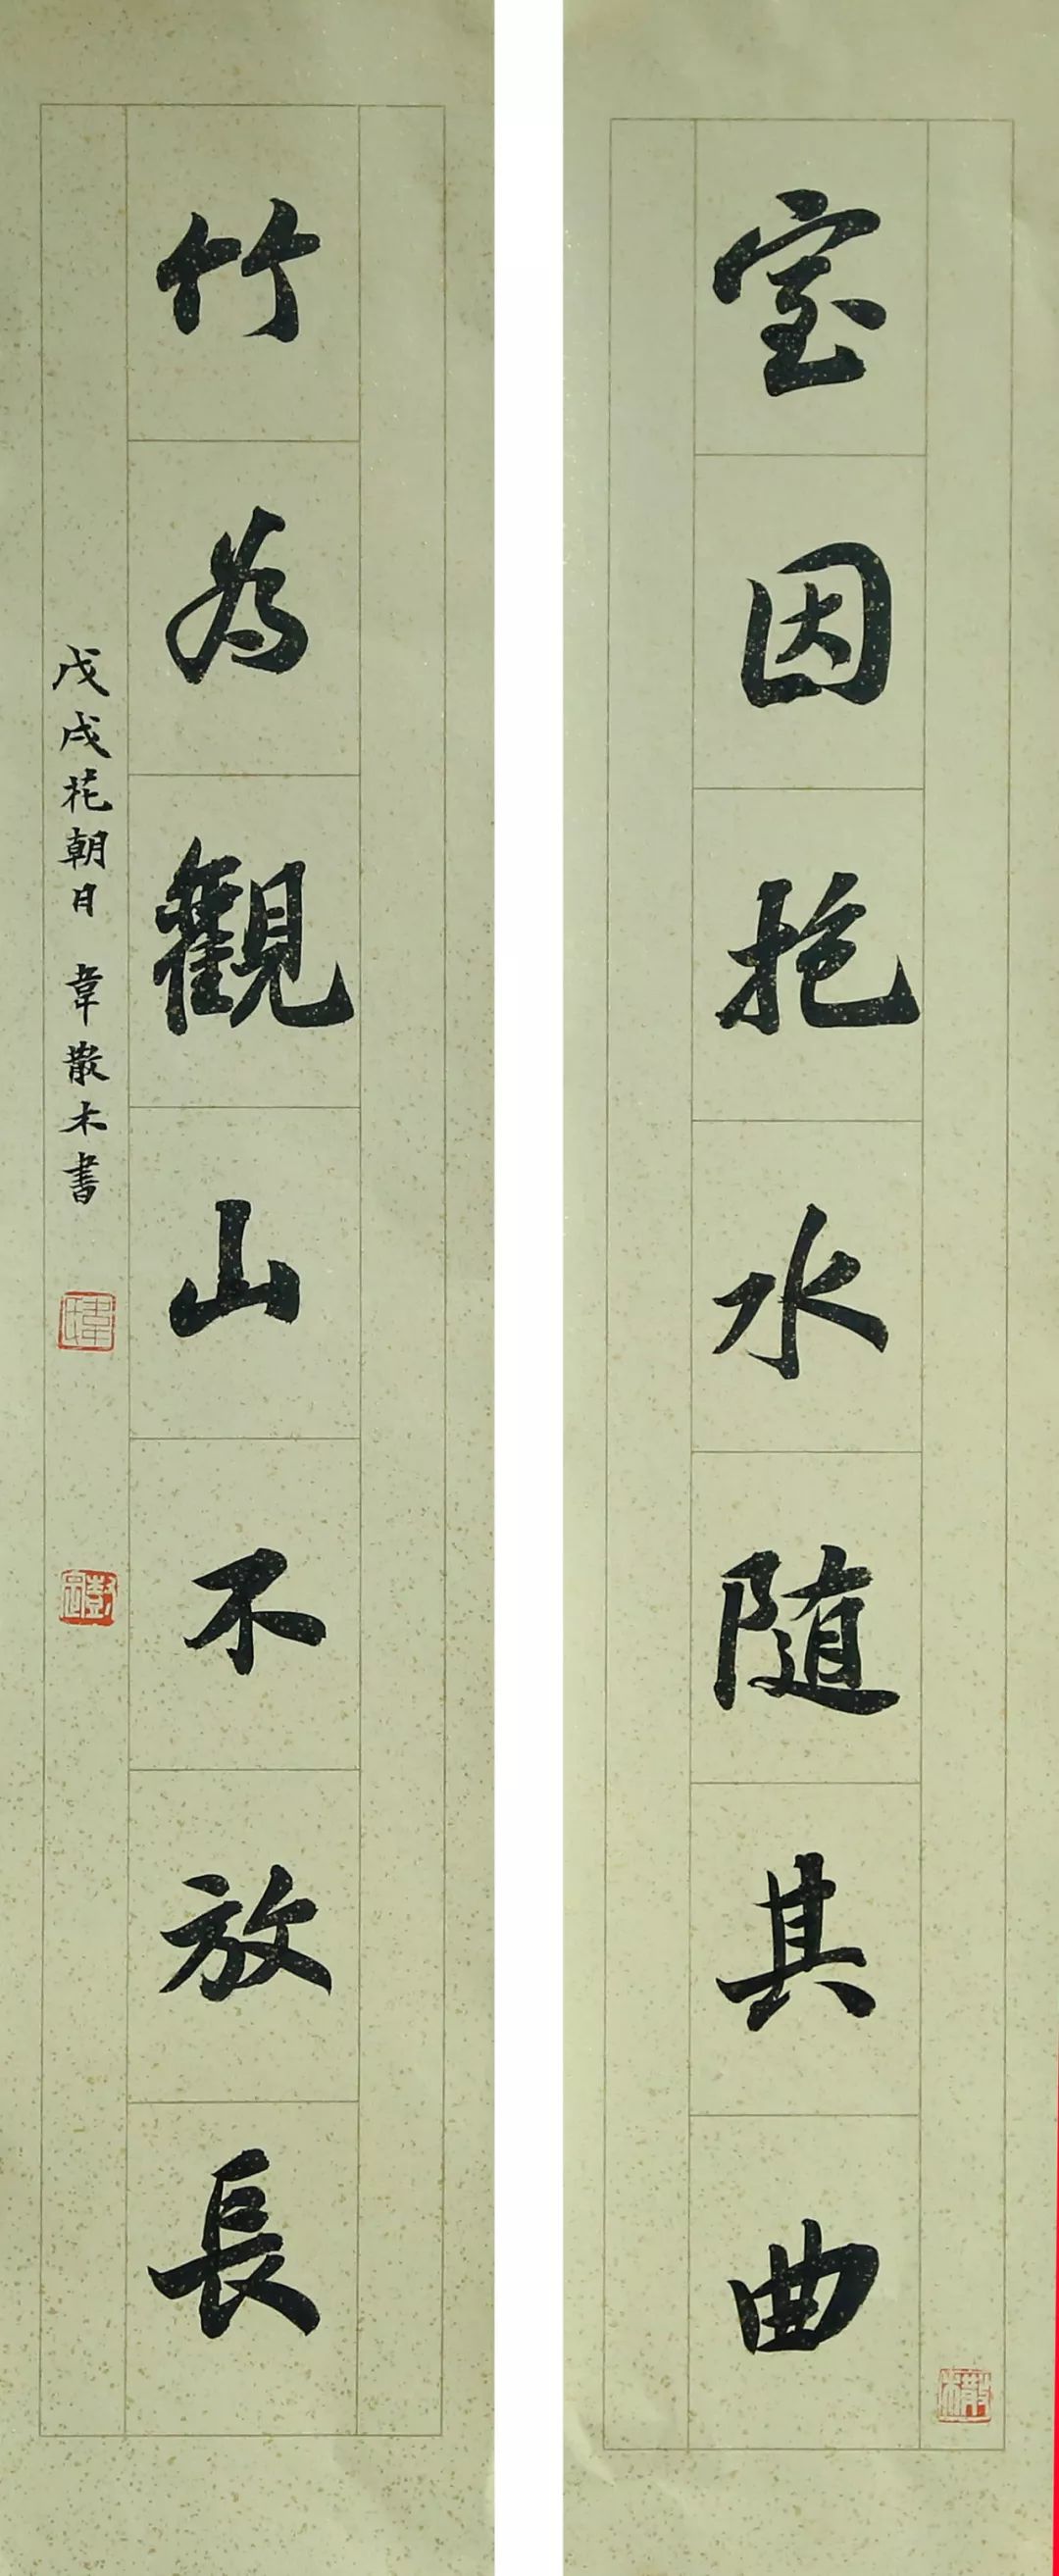 室因抱水随其曲
竹為觀山不放長
戊戌花朝日 韋散木書